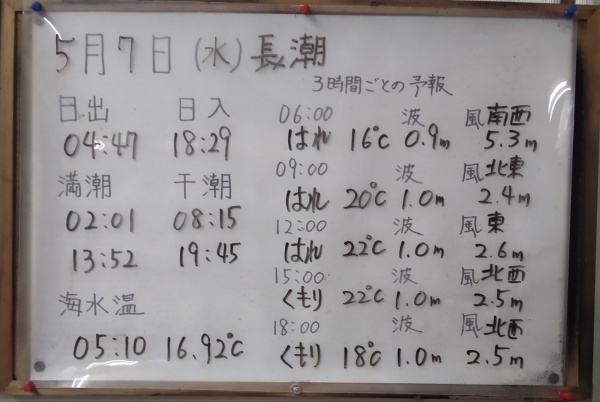 5月7日(水)長潮
3時間ごとの予報
日出 日入
04:47 18:29
満潮 干潮
02:01 08:15
13:52 19:45
海水温
05:10 16.92℃
06:00 波 風 南西
はれ 16℃ 0.9m 5.3m
09:00 波 風 北東
はれ 20℃ 1.0m 2.4m
12:00 波 風 東
はれ 22℃ 1.0m 2.6m
15:00 波 風 北西
くもり 22℃ 1.0m 2.5m
18:00 波 風 北西
くもり 18℃ 1.0m 2.5m